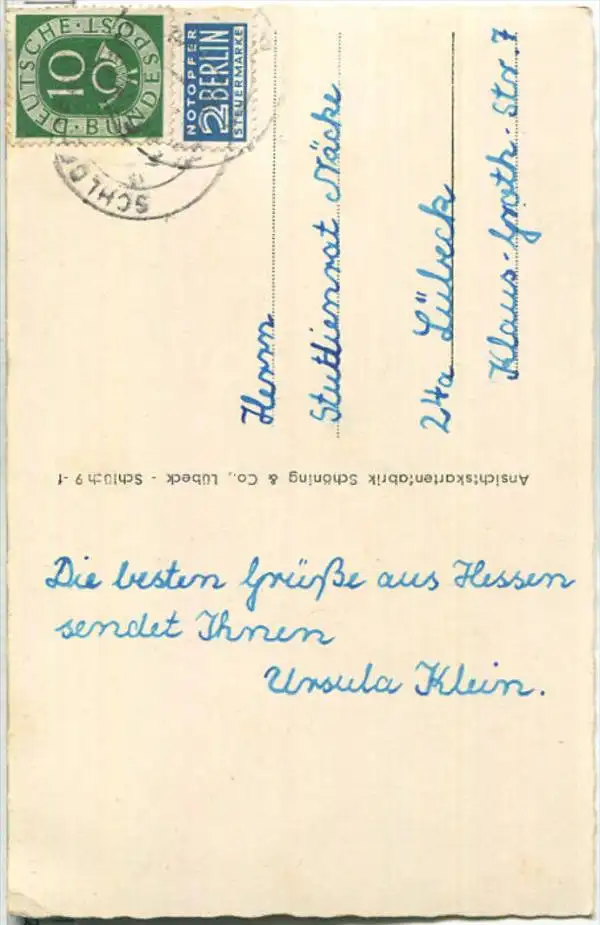 DEUTSCHE BUNDESPOST
10
NOTOPFER
2 BERLIN
STEUERMARKE
Herrn
Studienrat Näcke
24a Lübeck
Klaus-Groth-Str. 7
Ansichtskartenfabrik Schöning & Co., Lübeck - Schlüch 9-1
Die besten Grüße aus Hessen
sendet Ihnen
Ursula Klein.